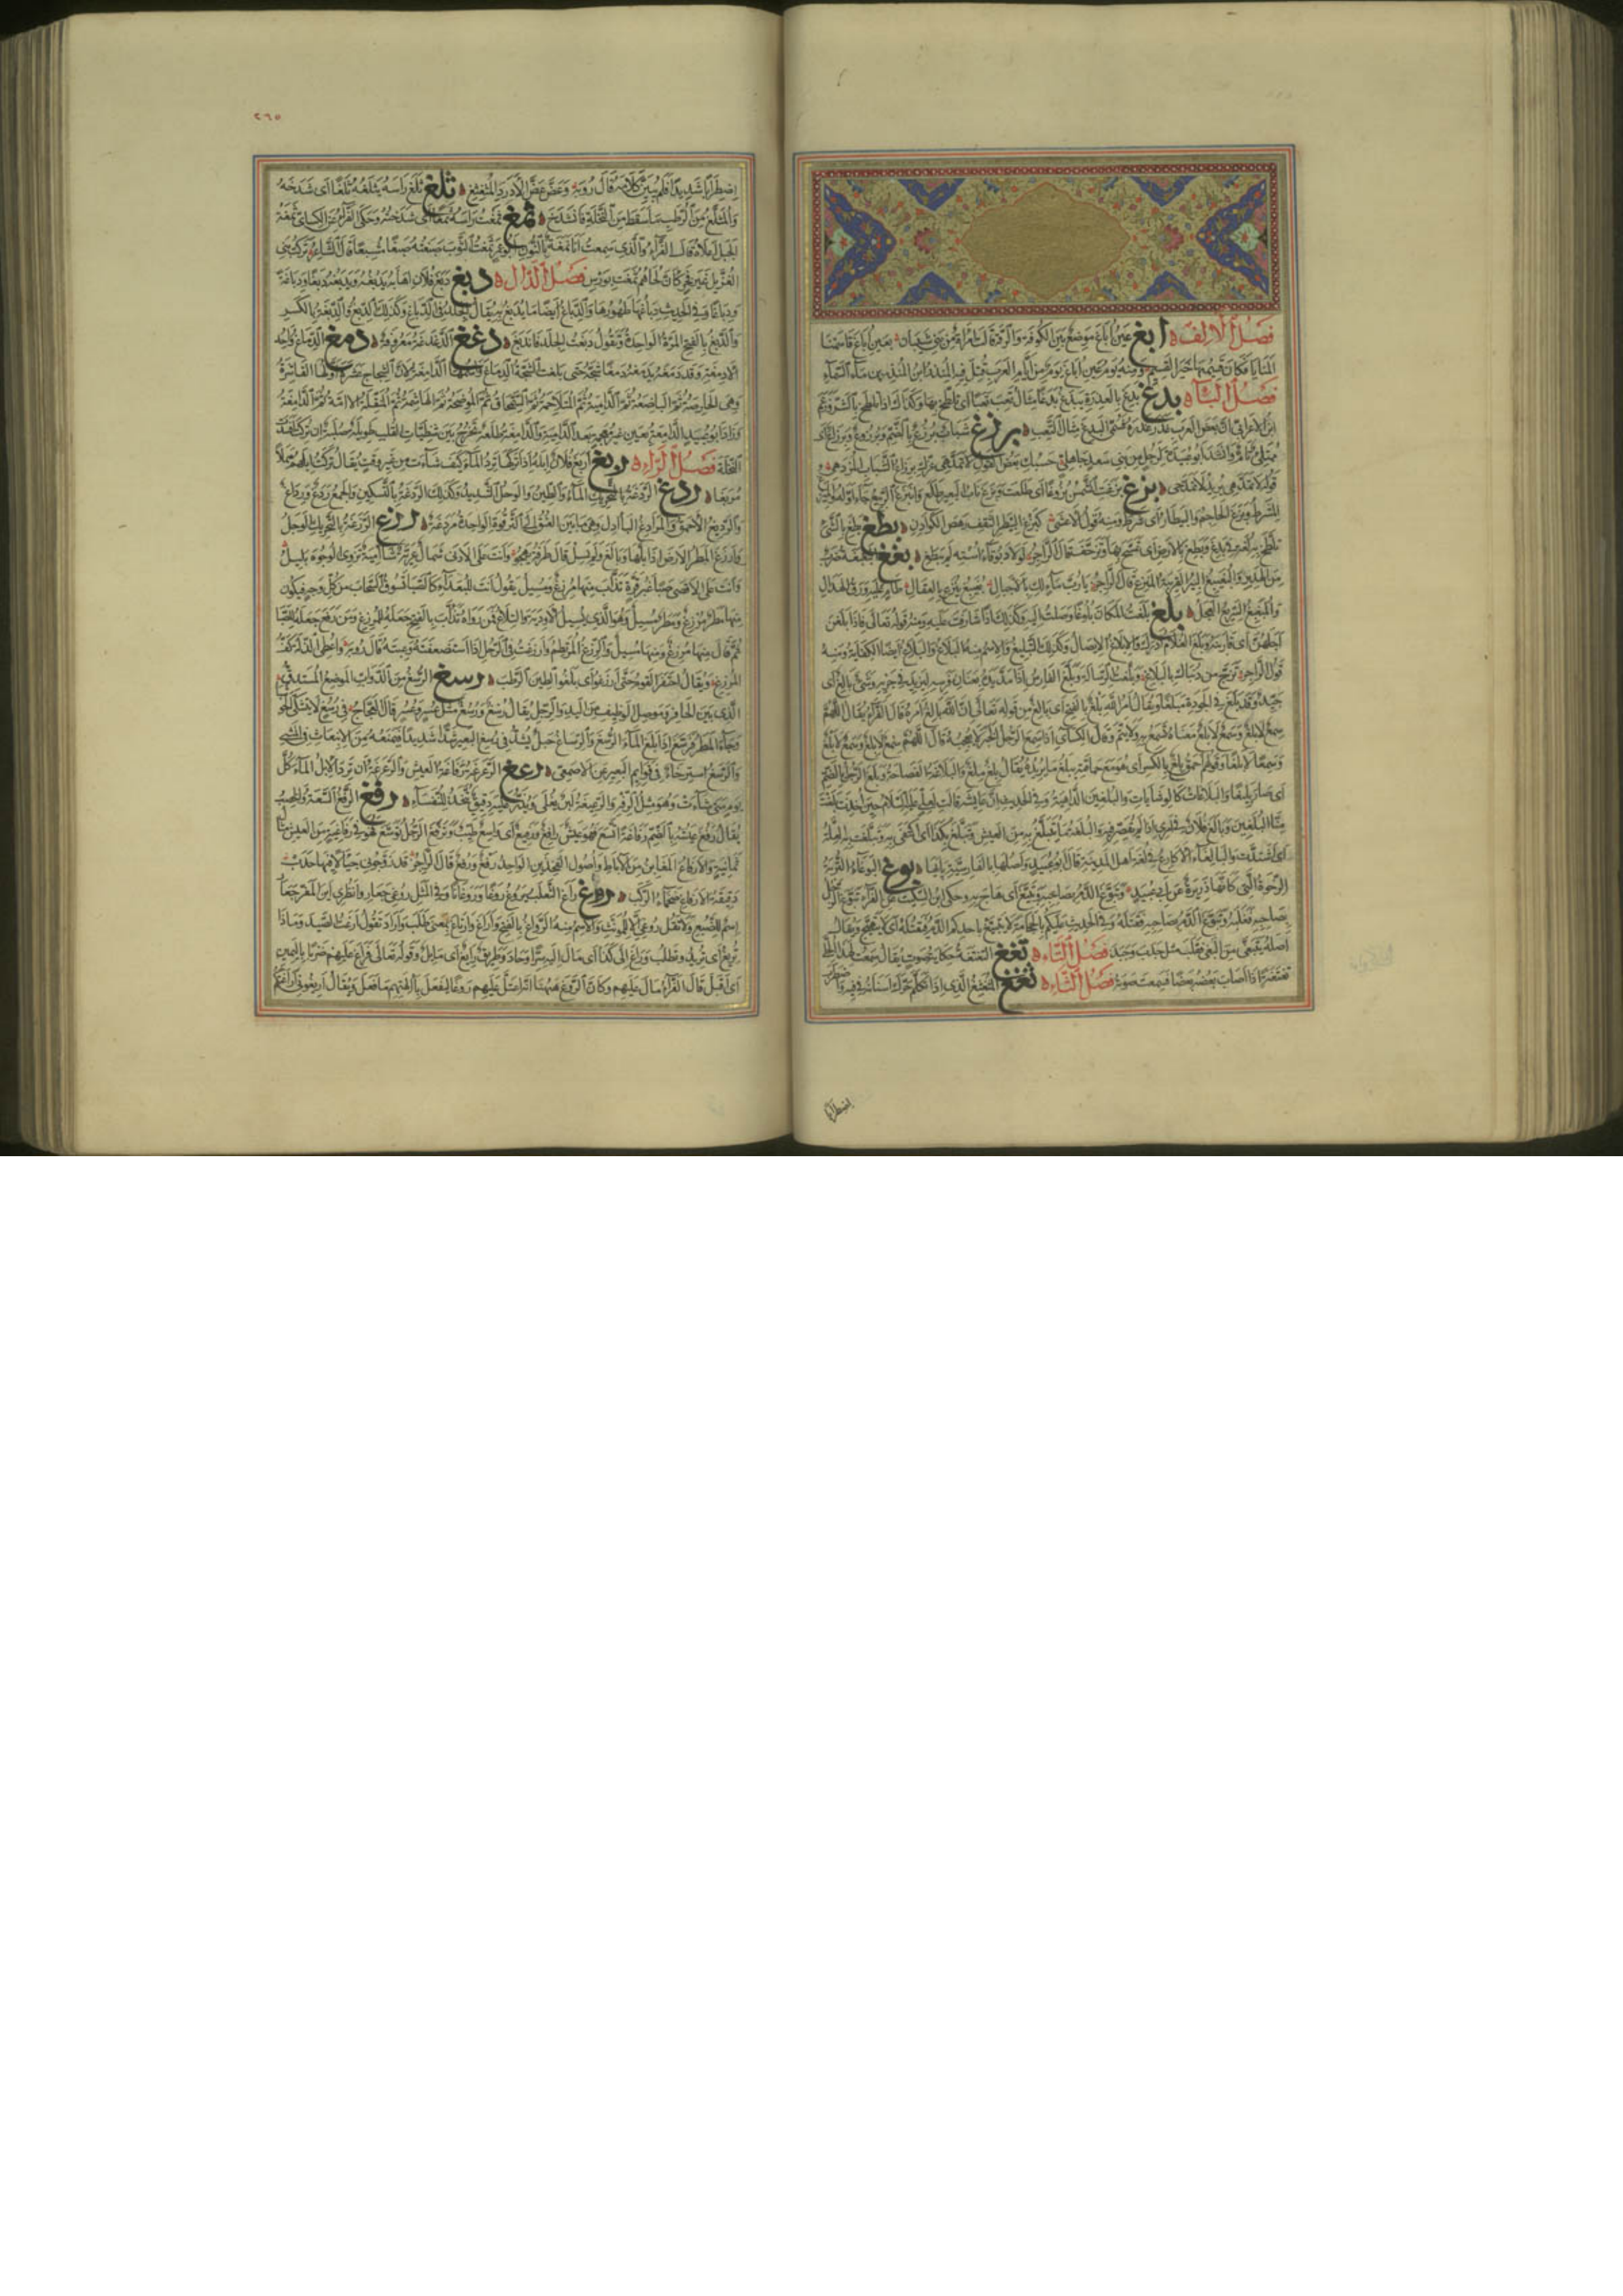 فصل الألف أبغ عين أباغ موضع بين الكوفة والرقة قالت امرأة من بني شيبان بعين أباغ قاسمنا
المنايا فكان قسيمها خير القسيم ومنه يوم عين أباغ يوم من أيام العرب قتل فيه المنذر بن المنذر بن ماء السماء
فصل الباء بدغ بدغ بالعذرة يبدغ بدغا مثال تعب تعبا أي تلطخ بها وكذلك إذا تلطخ بالشر
ابن الأعرابي برزغ شباب برزغ بالضم وبرزوغ وبرزاغ أي
ممتلئ تام وأنشد أبو عبيدة لرجل من بني سعد جاهلي حسبك بعض القول لا تمدهي غرك برزاغ الشباب المزدهي
قوله لا تمدهي يريد لا تمدحي بزغ بزغت الشمس بزوغا أي طلعت وبزغ ناب البعير طلع وابتزغ الربيع جاء أوله
الشرط وبزغ الحاجم والبيطار أي شرط ومنه قول الأعشى كبزغ البيطر الثقف رهص الكوادن بطغ بطغ بالشيء
تلطخ به لغة في بدغ وبطغ بالأرض أي تمسح بها وتزحف قال الراجز لولا دبوقاء استه لم يبطغ بغغ البغبغة ضرب
من الهدير والبغيبغ البئر القريبة المنزع قال الراجز يا رب ماء لك بالأجبال بغيبغ ينزع بالعقال طام عليه ورق الهدال
والمبغبغ السريع العجل بلغ بلغت المكان بلوغا وصلت إليه وكذلك إذا شارفت عليه ومنه قوله تعالى فإذا بلغن
أجلهن أي قاربنه وبلغ الغلام أدرك والإبلاغ الإيصال وكذلك التبليغ والاسم منه البلاغ والبلاغ أيضا الكفاية ومنه
قول الراجز تزج من دنياك بالبلاغ وبلغت الرسالة وبلغ الفارس إذا مد يده بعنان فرسه ليزيد في جريه وشيء بالغ أي
جيد وقد بلغ في الجودة مبلغا ويقال أمر الله بلغ بالفتح أي بالغ من قوله تعالى إن الله بالغ أمره قال الفراء يقال اللهم
سمع لا بلغ وسمع لا بلغ معناه يسمع به ولا يتم وقال الكسائي إذا سمع الرجل الخبر لا يعجبه قال اللهم سمع لا بلغ وسمع لا بلغ
وسمعا لا بلغا وقولهم أحمق بلغ بالكسر أي هو مع حماقته يبلغ ما يريده يقال بلغ ملغ والبلاغة الفصاحة وبلغ الرجل بالضم
أي صار بليغا والبلاغات كالوشايات والبلغين الداهية وفي الحديث أن عايشة قالت لعلي عليه السلام حين أخذت بلغت
منا البلغين وبالغ فلان في أمري إذا لم يقصر فيه والبلغة ما يتبلغ به من العيش وتبلغ بكذا أي اكتفى به وتبلغت به العلة
أي اشتدت والبالغاء الأكارع في لغة أهل المدينة قال أبو عبيد وأصلها بالفارسية بايها بوغ البوغاء التربة
الرخوة التي كأنها ذريرة عن أبي عبيد وتبوغ الدم بصاحبه وتبيغ أي هاج به وحكى ابن السكيت عن الفراء تبوغ الرجل
بصاحبه فغلبه وتبوغ الدم بصاحبه فقتله وفي الحديث عليكم بالحجامة لا يتبيغ بأحدكم الدم فيقتله أي لا يتهيج ويقال
أصله يتبغى من البغي فقلب مثل جذب وجبذ فصل التاء تغغ التغتغة حكاية صوت يقال سمعت لهذا الحلي
تغتغة إذا أصاب بعضه بعضا فسمعت صوته فصل الثاء ثغغ المثغثغ الذي إذا تكلم حرك أسنانه في فيه واضطرب
اضطرابا
٢٦٥
اضطرابا شديدا فلم يبين كلامه قال رؤبة وعض عض الأدرد المثغثغ ثلغ ثلغ رأسه يثلغه ثلغا أي شدخه
والمثلغ من الرطب ما سقط من النخلة فانشدخ ثمغ ثمغت رأسه ثمغا أي شدخته وحكى الفراء عن الكسائي ثمغة
الجبل أعلاه قال الفراء والذي سمعت أنا نمغة بالنون أبو عمرو ثمغت الثوب صبغته صبغا مشبعا قال الشاعر تركت بني
الغزيل غير فخر كأن لحاهم ثمغت بورس فصل الدال دبغ دبغ فلان إهابه يدبغه ويدبغه دبغا ودباغة
ودباغا وفي الحديث دباغها طهورها والدباغ أيضا ما يدبغ به يقال الجلد في الدباغ وكذلك الدبغ والدبغة بالكسر
والدبغة بالفتح المرة الواحدة وتقول دبغت الجلد فاندبغ دغغ الدغدغة معروفة دمغ الدماغ واحد
الأدمغة وقد دمغه يدمغه دمغا شجه حتى بلغت الشجة الدماغ واسمها الدامغة لأن الشجاج عشرة أولها القاشرة
وهي الحارصة ثم الباضعة ثم الدامية ثم المتلاحمة ثم السمحاق ثم الموضحة ثم الهاشمة ثم المنقلة ثم الآمة ثم الدامغة
وزاد أبو عبيد الدامعة بعين غير معجمة بعد الدامية والدامغة طلعة تخرج بين شظيات القلب طويلة صلبة إن تركت أفسدت
النخلة فصل الراء ربغ أربغ فلان إبله إذا تركها ترد الماء كيف شاءت من غير وقت يقال تركت إبلهم هملا
مربغا ردغ الردغة بالتحريك الماء والطين والوحل الشديد وكذلك الردغة بالتسكين والجمع ردغ ورداغ
والرديغ الأحمق والمرادغ البآدل وهي ما بين العنق إلى الترقوة الواحدة مردغة رزغ الرزغة بالتحريك الوحل
وأرزغ المطر الأرض إذا بلها وبالغ ولم يسل قال طرفة يهجو وأنت على الأدنى شمال عرية شآمية تزوي الوجوه بليل
وأنت على الأقصى صبا غير قرة تذاءب منها مرزغ ومسيل يقول أنت للبعداء كالصبا تسوق السحاب من كل وجه فيكون
منها مطر مرزغ ومطر مسيل وهو الذي يسيل الأودية والتلاع فمن رواه تذاءب بالفتح جعله للمرزغ ومن رفع جعله للصبا
ثم قال منها مرزغ ومنها مسيل والرزغ المرتطم وأرزغت في الرجل إذا استضعفته وعبته قال رؤبة وأعطي الذلة كف
المرزغ ويقال احتفر القوم حتى أرزغوا أي بلغوا الطين الرطب رسغ الرسغ من الدواب الموضع المستدق
الذي بين الحافر وموصل الوظيف من اليد والرجل يقال رسغ ورسغ مثل عسر وعسر قال العجاج في رسغ لا يتشكى الحوشبا
وجاء المطر فرسغ إذا بلغ الماء الرسغ والرساغ حبل يشد في رسغ البعير شدا شديدا فيمنعه من الانبعاث في المشي
والرسغ استرخاء في قوائم البعير عن الأصمعي رغغ الرغرغة رفاغة العيش والرغرغة أن ترد الإبل الماء كل
يوم متى شاءت وهو مثل الرفه والرغيغة لبن يغلى ويذر عليه دقيق يتخذ للنفساء رفغ الرفغ السعة والخصب
يقال رفغ عيشه بالضم رفاغة اتسع فهو عيش رافغ ورفيغ أي واسع طيب وترفغ الرجل توسع وهو في رفاغية من العيش مثال
ثمانية والأرفاغ المغابن من الآباط وأصول الفخذين الواحد رفغ ورفغ قال الراجز قد زوجوني جيألا فيها حدب
دقيقة الأرفاغ ضخماء الركب روغ راغ الثعلب يروغ روغا وروغانا وفي المثل روغي جعار وانظري أين المفر جعار
اسم للضبع ولا تقل روغي إلا للمؤنث والاسم منه الرواغ بالفتح وأراغ وارتاغ بمعنى طلب وأراد تقول أرغت الصيد وماذا
تريغ أي تريد وتطلب وراغ إلى كذا أي مال إليه سرا وحاد وطريق رايغ أي مايل وقوله تعالى فراغ عليهم ضربا باليمين
أي أقبل قال الفراء مال عليهم وكأن الروغ ههنا أنه اعتل عليهم روغا ليفعل بآلهتهم ما فعل ويقال أريغوني إراغتكم